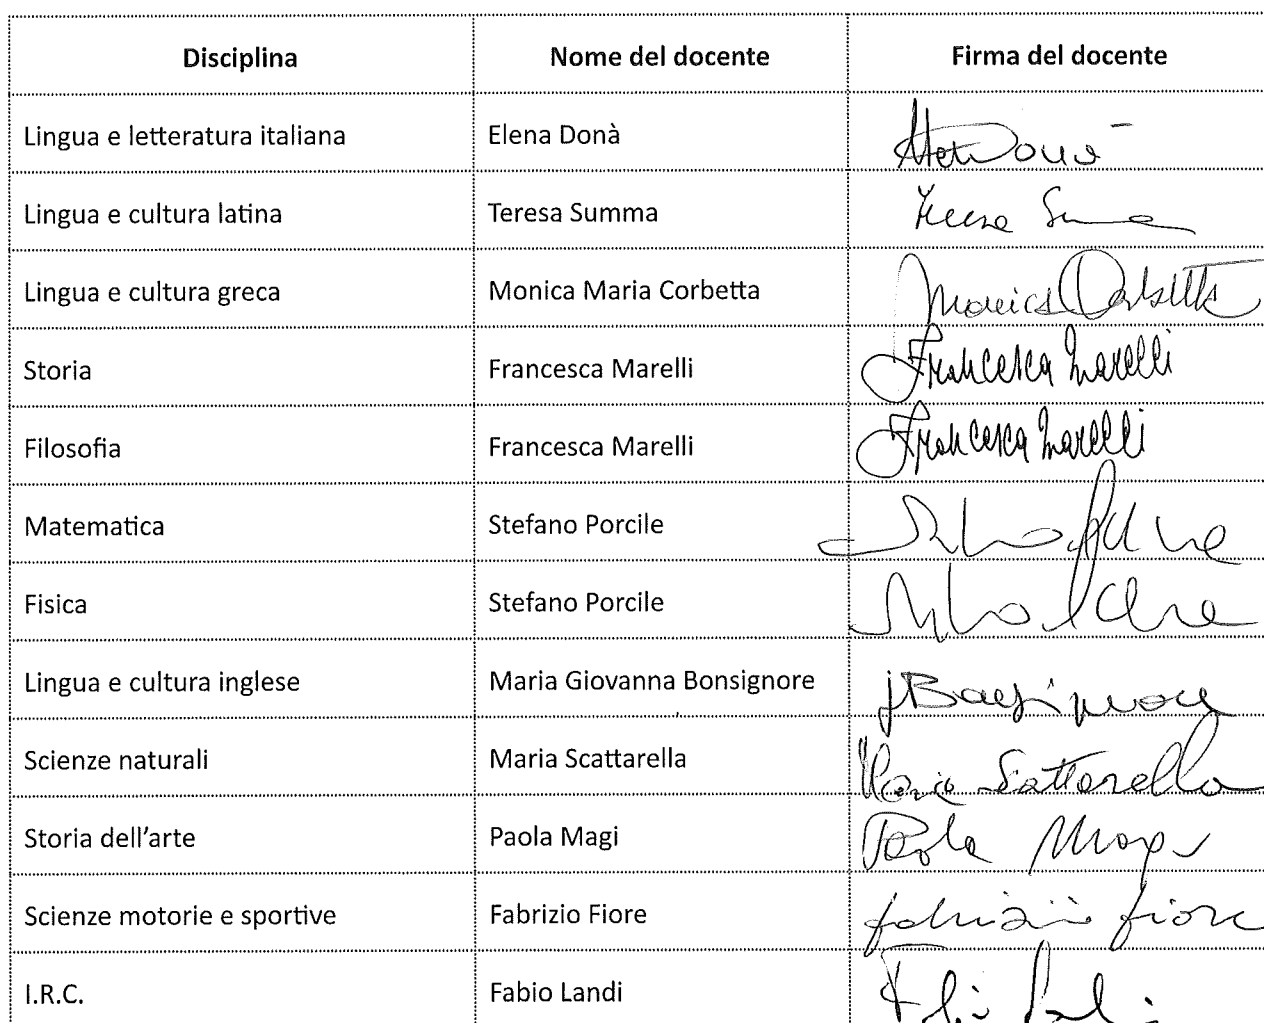 Disciplina Nome del docente Firma del docente
Lingua e letteratura italiana Elena Donà Elena Donà
Lingua e cultura latina Teresa Summa Teresa Summa
Lingua e cultura greca Monica Maria Corbetta Monica Corbetta
Storia Francesca Marelli Francesca Marelli
Filosofia Francesca Marelli Francesca Marelli
Matematica Stefano Porcile Stefano Porcile
Fisica Stefano Porcile Stefano Porcile
Lingua e cultura inglese Maria Giovanna Bonsignore Bonsignore
Scienze naturali Maria Scattarella Maria Scattarella
Storia dell'arte Paola Magi Paola Magi
Scienze motorie e sportive Fabrizio Fiore Fabrizio Fiore
I.R.C. Fabio Landi Fabio Landi